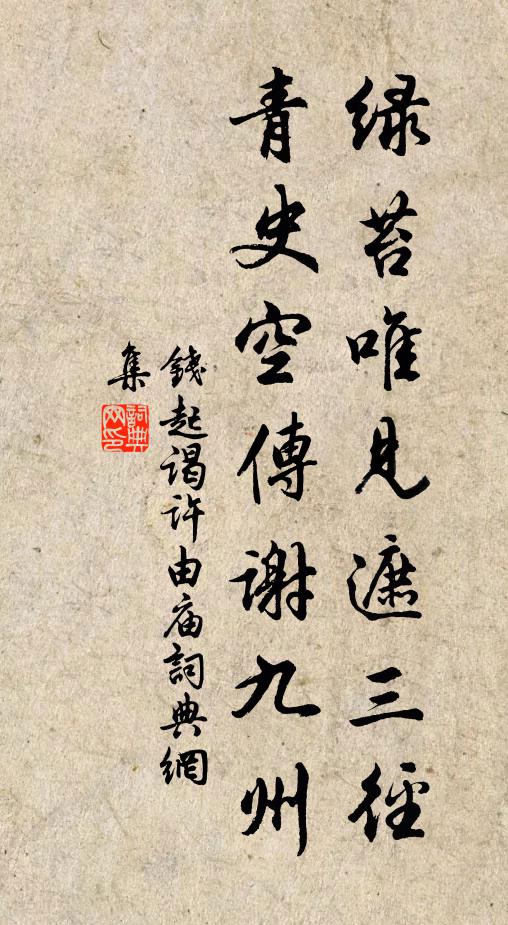 绿苔唯见遮三径
青史空傳谢九州
錢起谒许由庙詞典網
集
詞典
网印